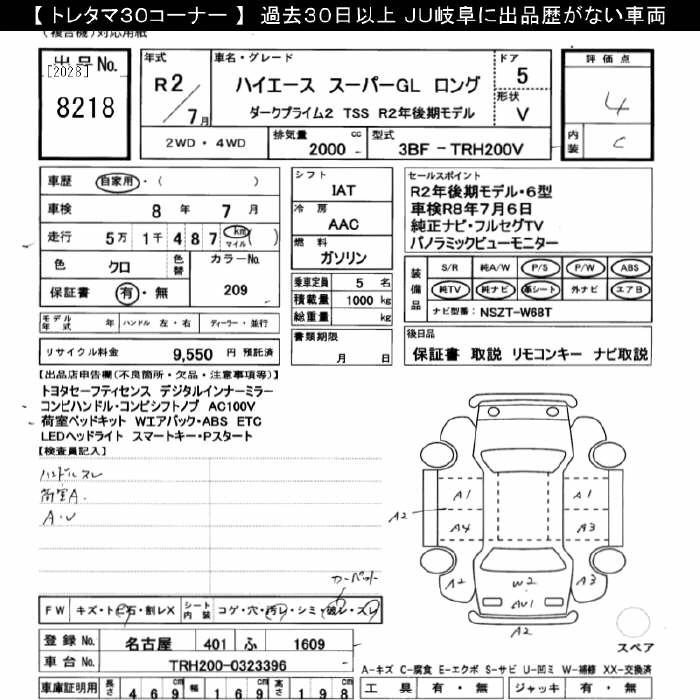 【 トレタマ30コーナー 】 過去30日以上 JU岐阜に出品歴がない車両
(複合機)対応用紙
出品No.
[2028]
8218
年式
R2/7月
車名・グレード
ハイエース スーパーGL ロング
ダークプライム2 TSS R2年後期モデル
ドア
5
形状
V
評価点
4
内装
C
2WD・4WD
排気量
2000 cc
型式
3BF-TRH200V
車歴 自家用・( )
車検 8年 7月
走行 5万 1千 4 8 7 km マイル ( )
色 クロ 色替
カラーNo.
209
保証書 有・無
モデル年式 年 ハンドル 左・右 ディーラー・並行
リサイクル料金 9,550 円 預託済
シフト
IAT
冷房
AAC
燃料
ガソリン
乗車定員 5 名
積載量 1000 kg
総重量 kg
書類期限
月 日
セールスポイント
R2年後期モデル・6型
車検R8年7月6日
純正ナビ・フルセグTV
パノラミックビューモニター
装備品
S/R 純A/W P/S P/W ABS
純TV 純ナビ 革シート 外ナビ エアB
ナビ型番: NSZT-W68T
後日品
保証書 取説 リモコンキー ナビ取説
【出品店申告欄(不良箇所・欠品・注意事項等)】
トヨタセーフティセンス デジタルインナーミラー
コンビハンドル・コンビシフトノブ AC100V
荷室ベッドキット Wエアバック・ABS ETC
LEDヘッドライト スマートキー・Pスタート
【検査員記入】
ハンドルスレ
荷室A.
A・U
カーペット
FW キズ・トビ石・割レX シート内装 コゲ・穴・汚レ・シミ・破レ・スレ
登録No. 名古屋 401 ふ 1609
車台No. TRH200-0323396
車庫証明用 長さ 4 6 9 cm 幅 1 6 9 cm 高さ 1 9 8 cm
A1
A1
A2
A4
A3
A2
A3
W2
AU1
A2
スペア
A-キズ C-腐食 E-エクボ S-サビ U-凹ミ W-補修 XX-交換済
工具 有・無 ジャッキ 有・無